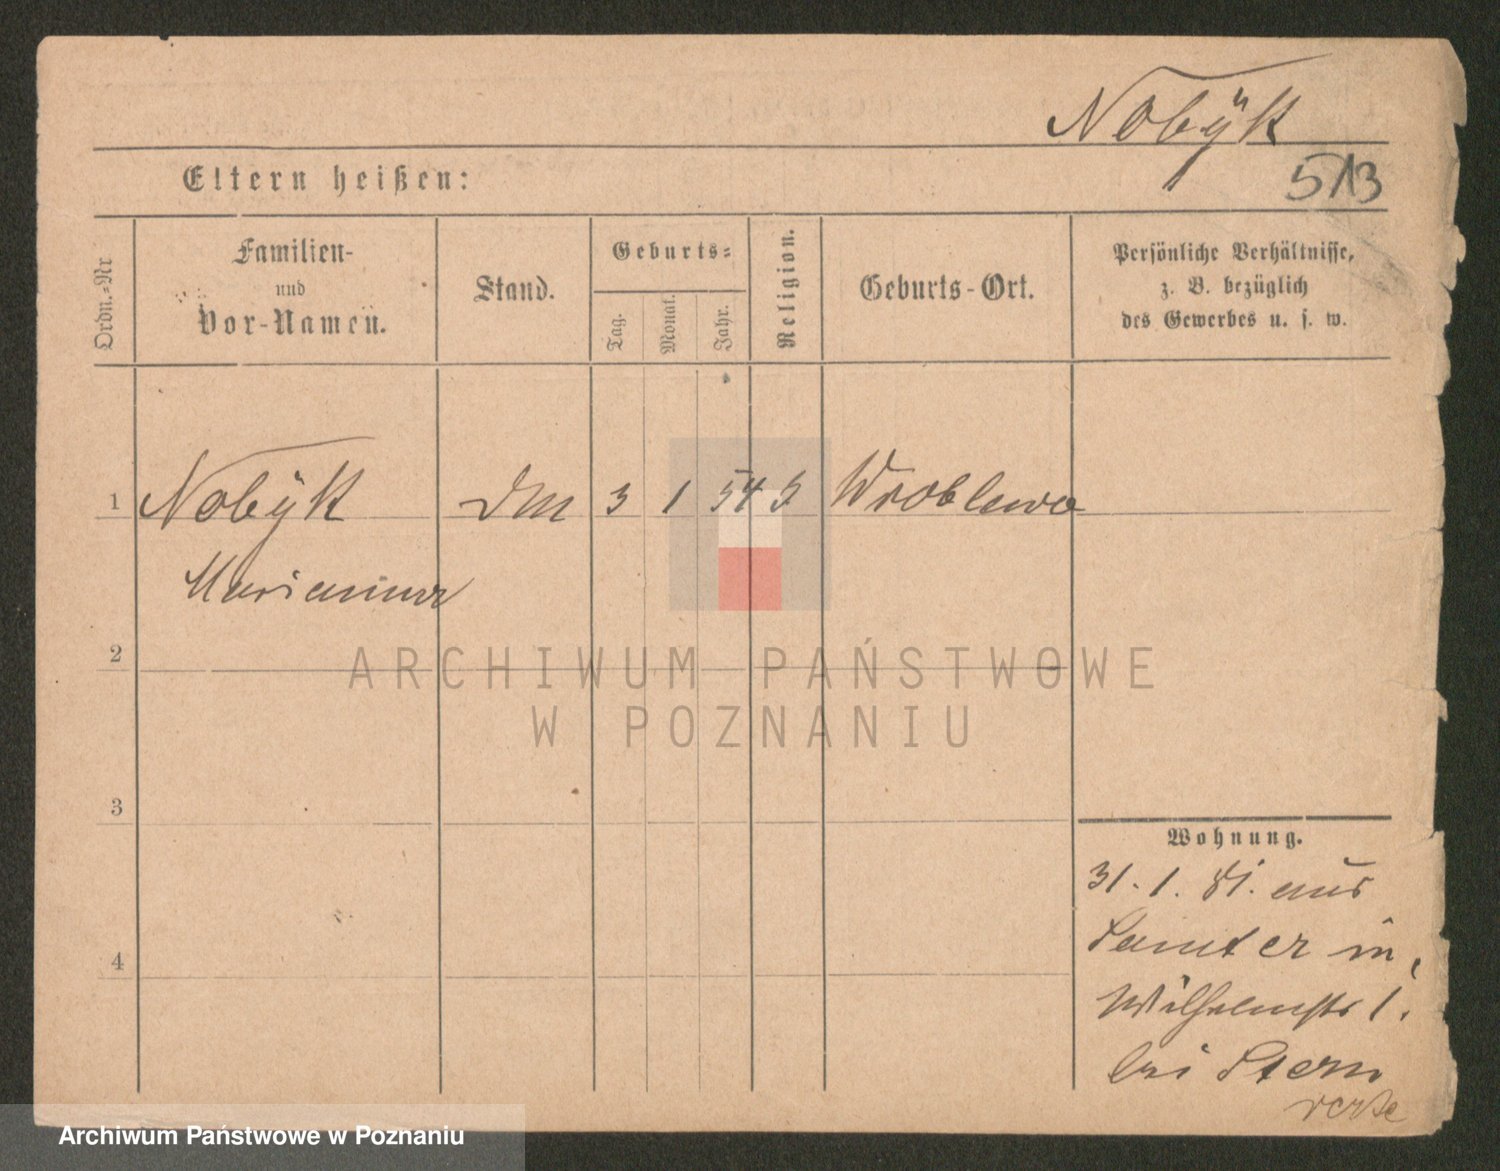 Nobÿk
513
Eltern heißen:
Ordn.-Nr
Familien-
und
Vor-Namen.
Stand.
Geburts-
Tag.
Monat.
Jahr.
Religion.
Geburts-Ort.
Persönliche Verhältnisse,
z. B. bezüglich
des Gewerbes u. s. w.
1 Nobÿk 3 1 54 Wroblewo
Marianna
2
3
4
Wohnung.
31. 1. 81. aus
Samter in
Wilhelmstr 1.
bei Stern
ARCHIWUM PAŃSTWOWE
W POZNANIU
Archiwum Państwowe w Poznaniu